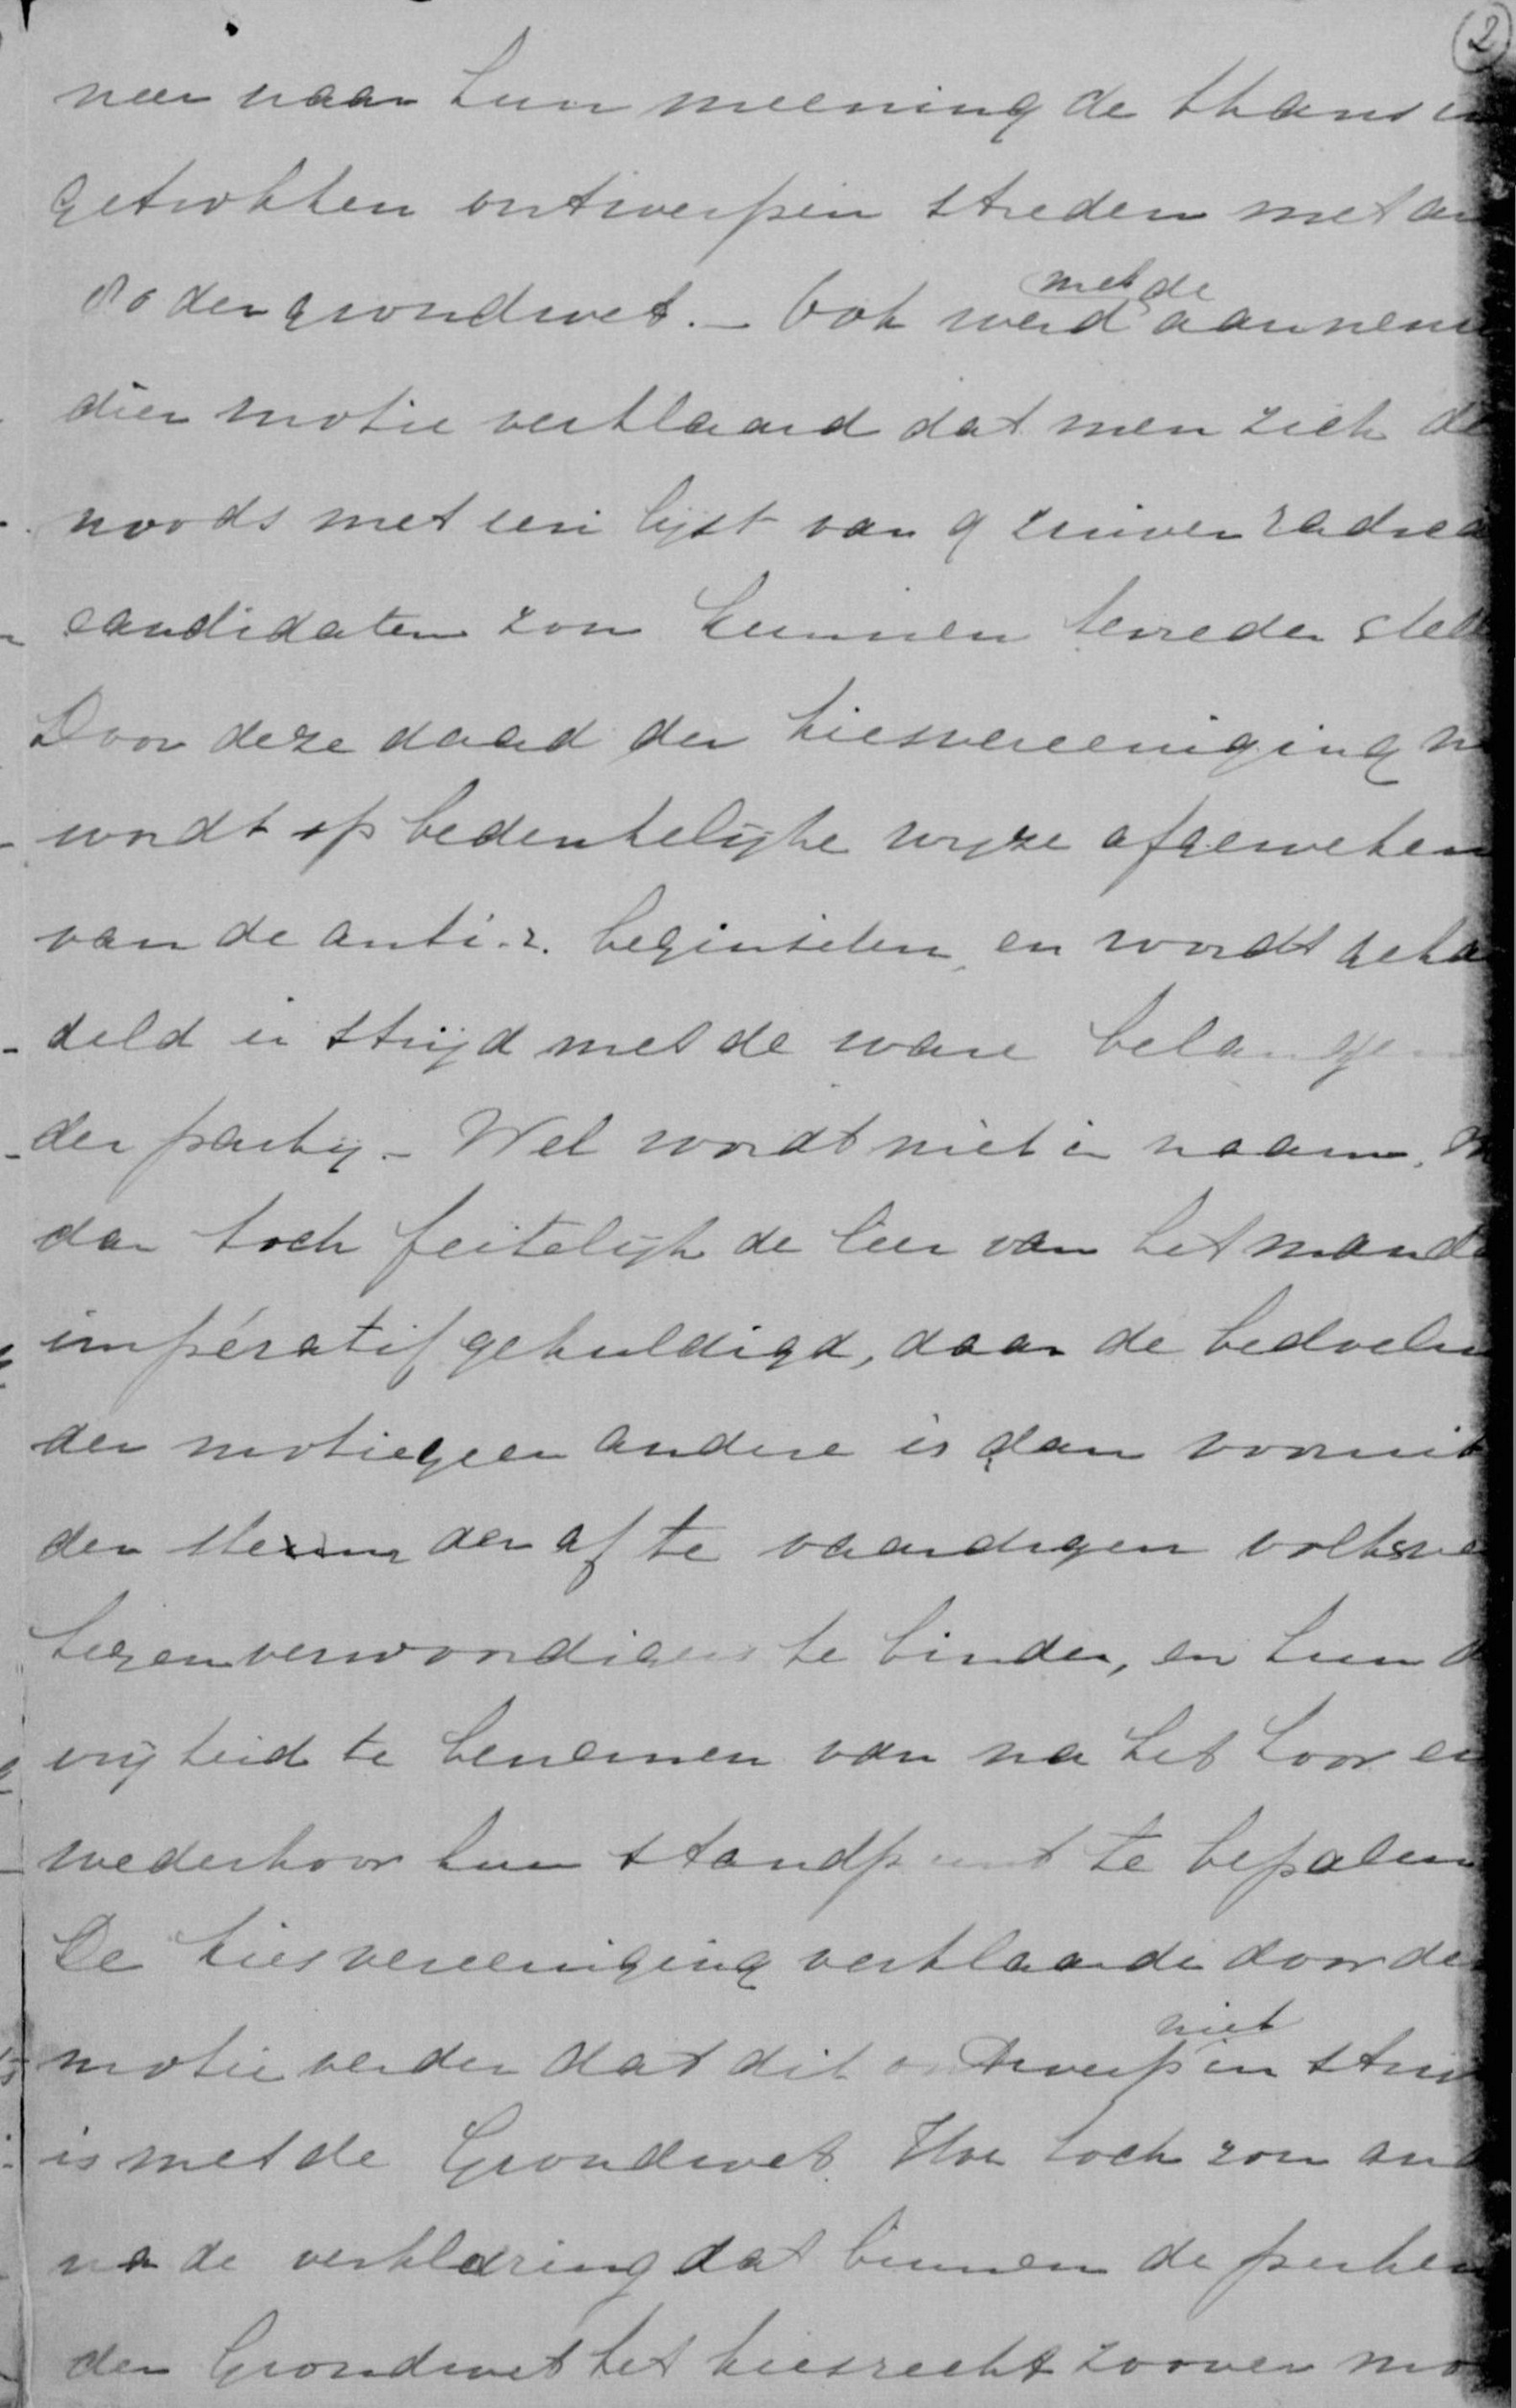 2
neer naar hun meening de thans in
getrokken ontwerpen streden met art
80 der grondwet. – Ook werd met de aanneming
dier motie verklaard dat men zich des
noods met een lijst van 9 zuiver radica
candidaten zou kunnen tevreden stell
Door deze daad der kiesvereeniging
wordt op bedenkelijke wijze afgeweken
van de anti-r. beginselen, en wordt geha
deld in strijd met de ware belangen
der partij – Wel wordt niet in naam,
dan toch feitelijk de leer van het manda
impératif gehuldigd, daar de bedoelin
der motie geen andere is dan vooruit
den stem der af te vaardigen volksve
tegenwoordigers te binden, en hun d
vrijheid te benemen van na het hoor en
wederhoor hun standpunt te bepalen
De kiesvereeniging verklaarde door de
motie verder dat dit ontwerp niet in strijd
is met de Grondwet. Hoe toch zou an
na de verklaring dat binnen de perken
der Grondwet het kiesrecht zoover mo